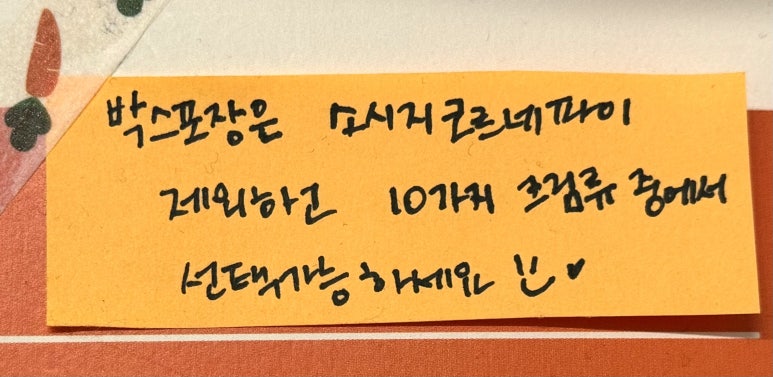 박스포장은 소시지코르네파이
제외하고 10가지 크림류 중에서
선택가능하세요 !!♥